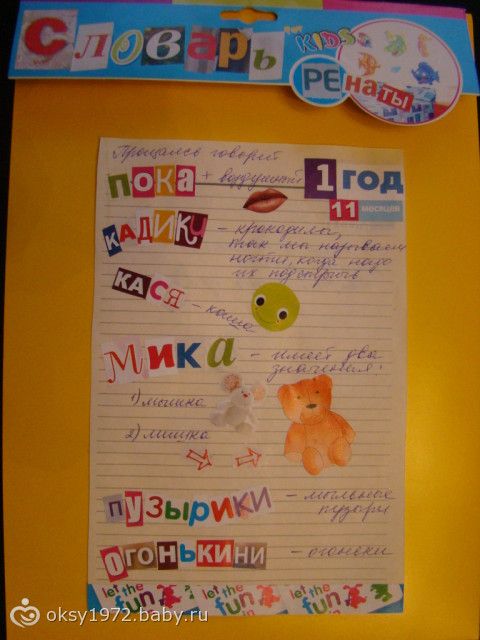 Словарь
KIDS
РЕнаты
Прощаясь говорит
ПОКА + воздушный
1 ГОД
11 МЕСЯЦЕВ
КАДИКИ - крокодилы,
так мы называем
ногти, когда надо
их подстричь
КАСЯ - каша
МИКА - имеет два
значения:
1) мышка
2) мишка
ПУЗЫРИКИ - мыльные
пузыри
ОГОНЬКИНИ - огоньки
let the fun let the fun let the fun
oksy1972.baby.ru